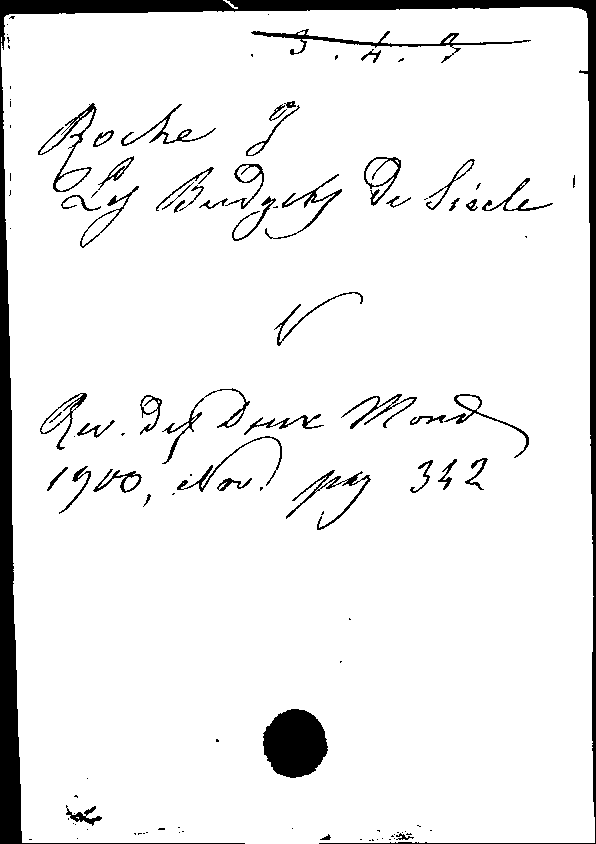 3.4.7
Roche J
Les Budgets de Siècle
V
Rev. des Deux Mond
1900, Nov. pag 342